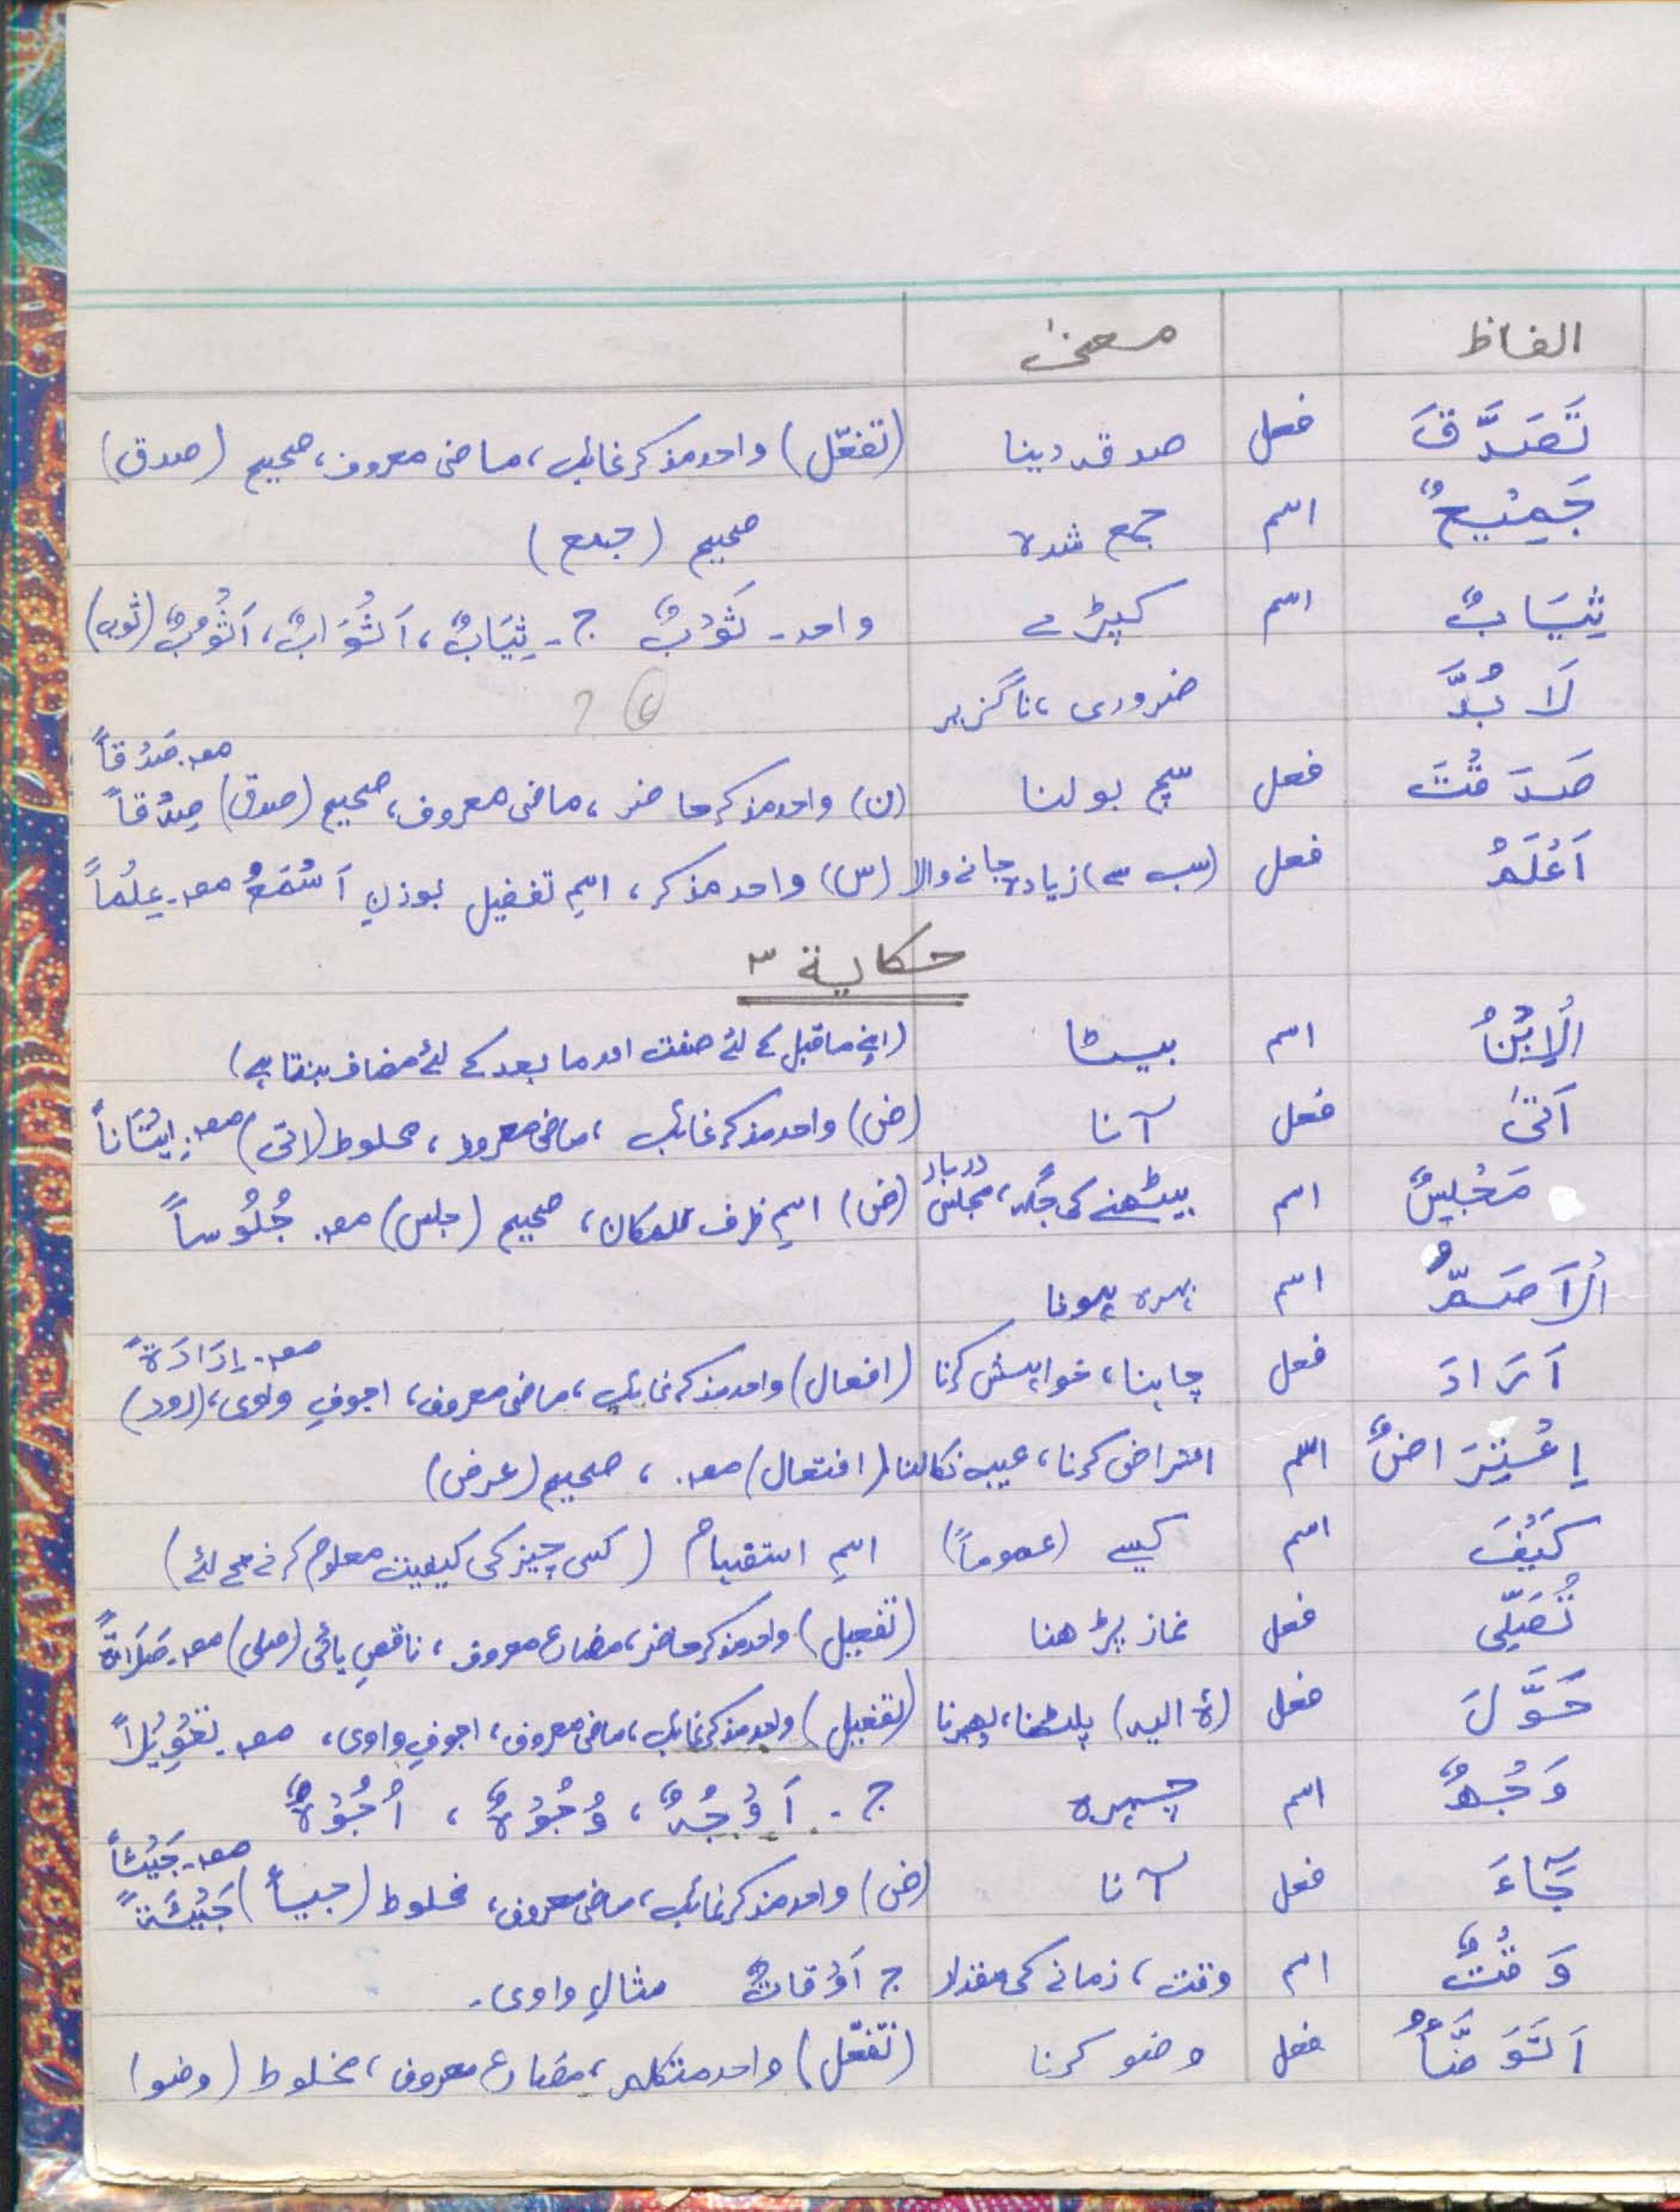 الفاظ معنیٰ
تَصَدَّقَ فعل صدقہ دینا (تفعّل) واحد مذکر غائب، ماضی معروف، صحیح (صدق)
جَمِیْعٌ اسم جمع شدہ صحیح (جمع)
ثِیَابٌ اسم کپڑے واحد۔ ثَوْبٌ ج۔ ثِیَابٌ، اَثْوَابٌ، اَثْوُبٌ (ثوب)
لَا بُدَّ ضروری، ناگزیر ؟
مصـ۔ صَدْقاً
صَدَقْتَ فعل سچ بولنا (ن) واحد مذکر حاضر، ماضی معروف، صحیح (صدق) صِدْقاً
اَعْلَمُ فعل (سب سے) زیادہ جاننے والا (س) واحد مذکر، اسمِ تفضیل بوزنِ اَسْمَعُ مصـ۔ عِلْماً
حكاية ٣
اَلْاِبْنُ اسم بیٹا (اپنے ماقبل کے لئے صفت اور ما بعد کے لئے مضاف بنتا ہے)
اَتیٰ فعل آنا (ض) واحد مذکر غائب، ماضی معروف، مخلوط (اتی) مصـ۔ اِتْیَاناً
دربار
مَجْلِسٌ اسم بیٹھنے کی جگہ، مجلس (ض) اسمِ ظرف للمکان، صحیح (جلس) مصـ۔ جُلُوساً
اَلْاَصَمُّ اسم بہرہ ہونا
مصـ۔ اِرَادَةً
اَرَادَ فعل چاہنا، خواہش کرنا (افعال) واحد مذکر غائب، ماضی معروف، اجوفِ واوی، (رود)
اِعْتِرَاضٌ اسم اعتراض کرنا، عیب نکالنا (افتعال) مصـ۔ ، صحیح (عرض)
کَیْفَ اسم کیسے (عموماً) اسمِ استفہام (کسی چیز کی کیفیت معلوم کرنے کے لئے)
تُصَلِّی فعل نماز پڑھنا (تفعیل) واحد مذکر حاضر، مضارع معروف، ناقصِ یائی (صلی) مصـ۔ صَلَاةً
حَوَّلَ فعل (ہٗ الیہ) پلٹنا، پھیرنا (تفعیل) واحد مذکر غائب، ماضی معروف، اجوفِ واوی، مصـ۔ تَحْوِیْلاً
وَجْهٌ اسم چہرہ ج۔ اَوْجُهٌ، وُجُوْهٌ، اُجُوْهٌ
مصـ۔ جَیْئاً
جَآءَ فعل آنا (ض) واحد مذکر غائب، ماضی معروف، مخلوط (جیأ) جَیْئَةً
وَقْتٌ اسم وقت، زمانے کی مقدار ج اَوْقَاتٌ مثالِ واوی۔
اَتَوَضَّأُ فعل وضو کرنا (تفعّل) واحد متکلم، مضارع معروف، مخلوط (وضو)